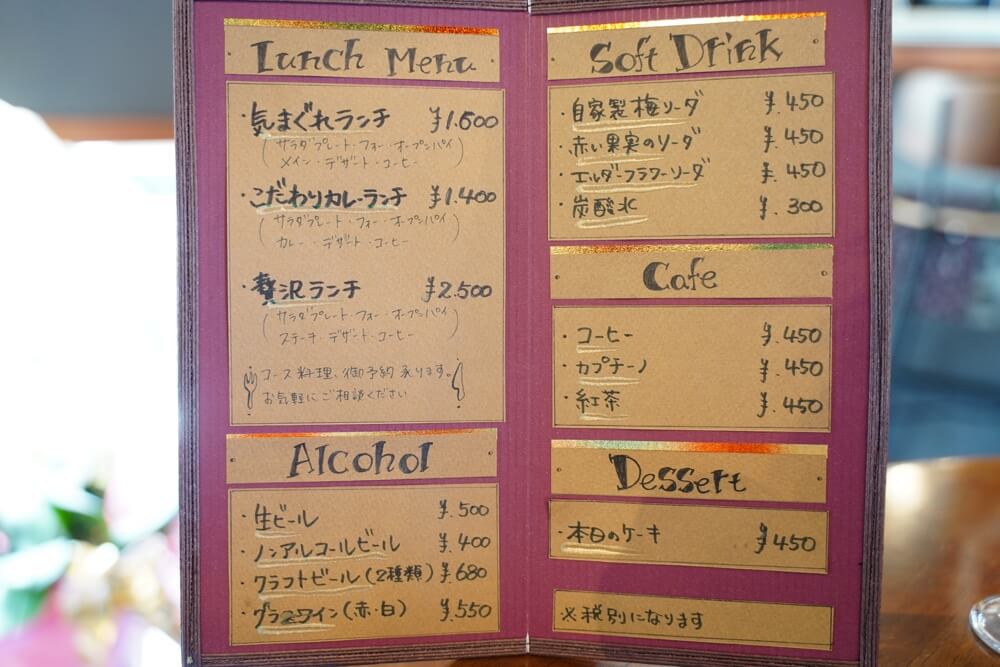 Lunch Menu
・気まぐれランチ ¥1.600
(サラダプレート・フォー・オープンパイ
メイン・デザート・コーヒー)
・こだわりカレーランチ ¥1.400
(サラダプレート・フォー・オープンパイ
カレー・デザート・コーヒー)
・贅沢ランチ ¥2.500
(サラダプレート・フォー・オープンパイ
ステーキ・デザート・コーヒー)
コース料理、御予約承ります。
お気軽にご相談ください
Alcohol
・生ビール ¥.500
・ノンアルコールビール ¥.400
・クラフトビール(2種類) ¥.680
・グラスワイン(赤・白) ¥.550
Soft Drink
・自家製梅ソーダ ¥.450
・赤い果実のソーダ ¥.450
・エルダーフラワーソーダ ¥.450
・炭酸水 ¥.300
Cafe
・コーヒー ¥.450
・カプチーノ ¥.450
・紅茶 ¥.450
Dessert
・本日のケーキ ¥450
※税別になります